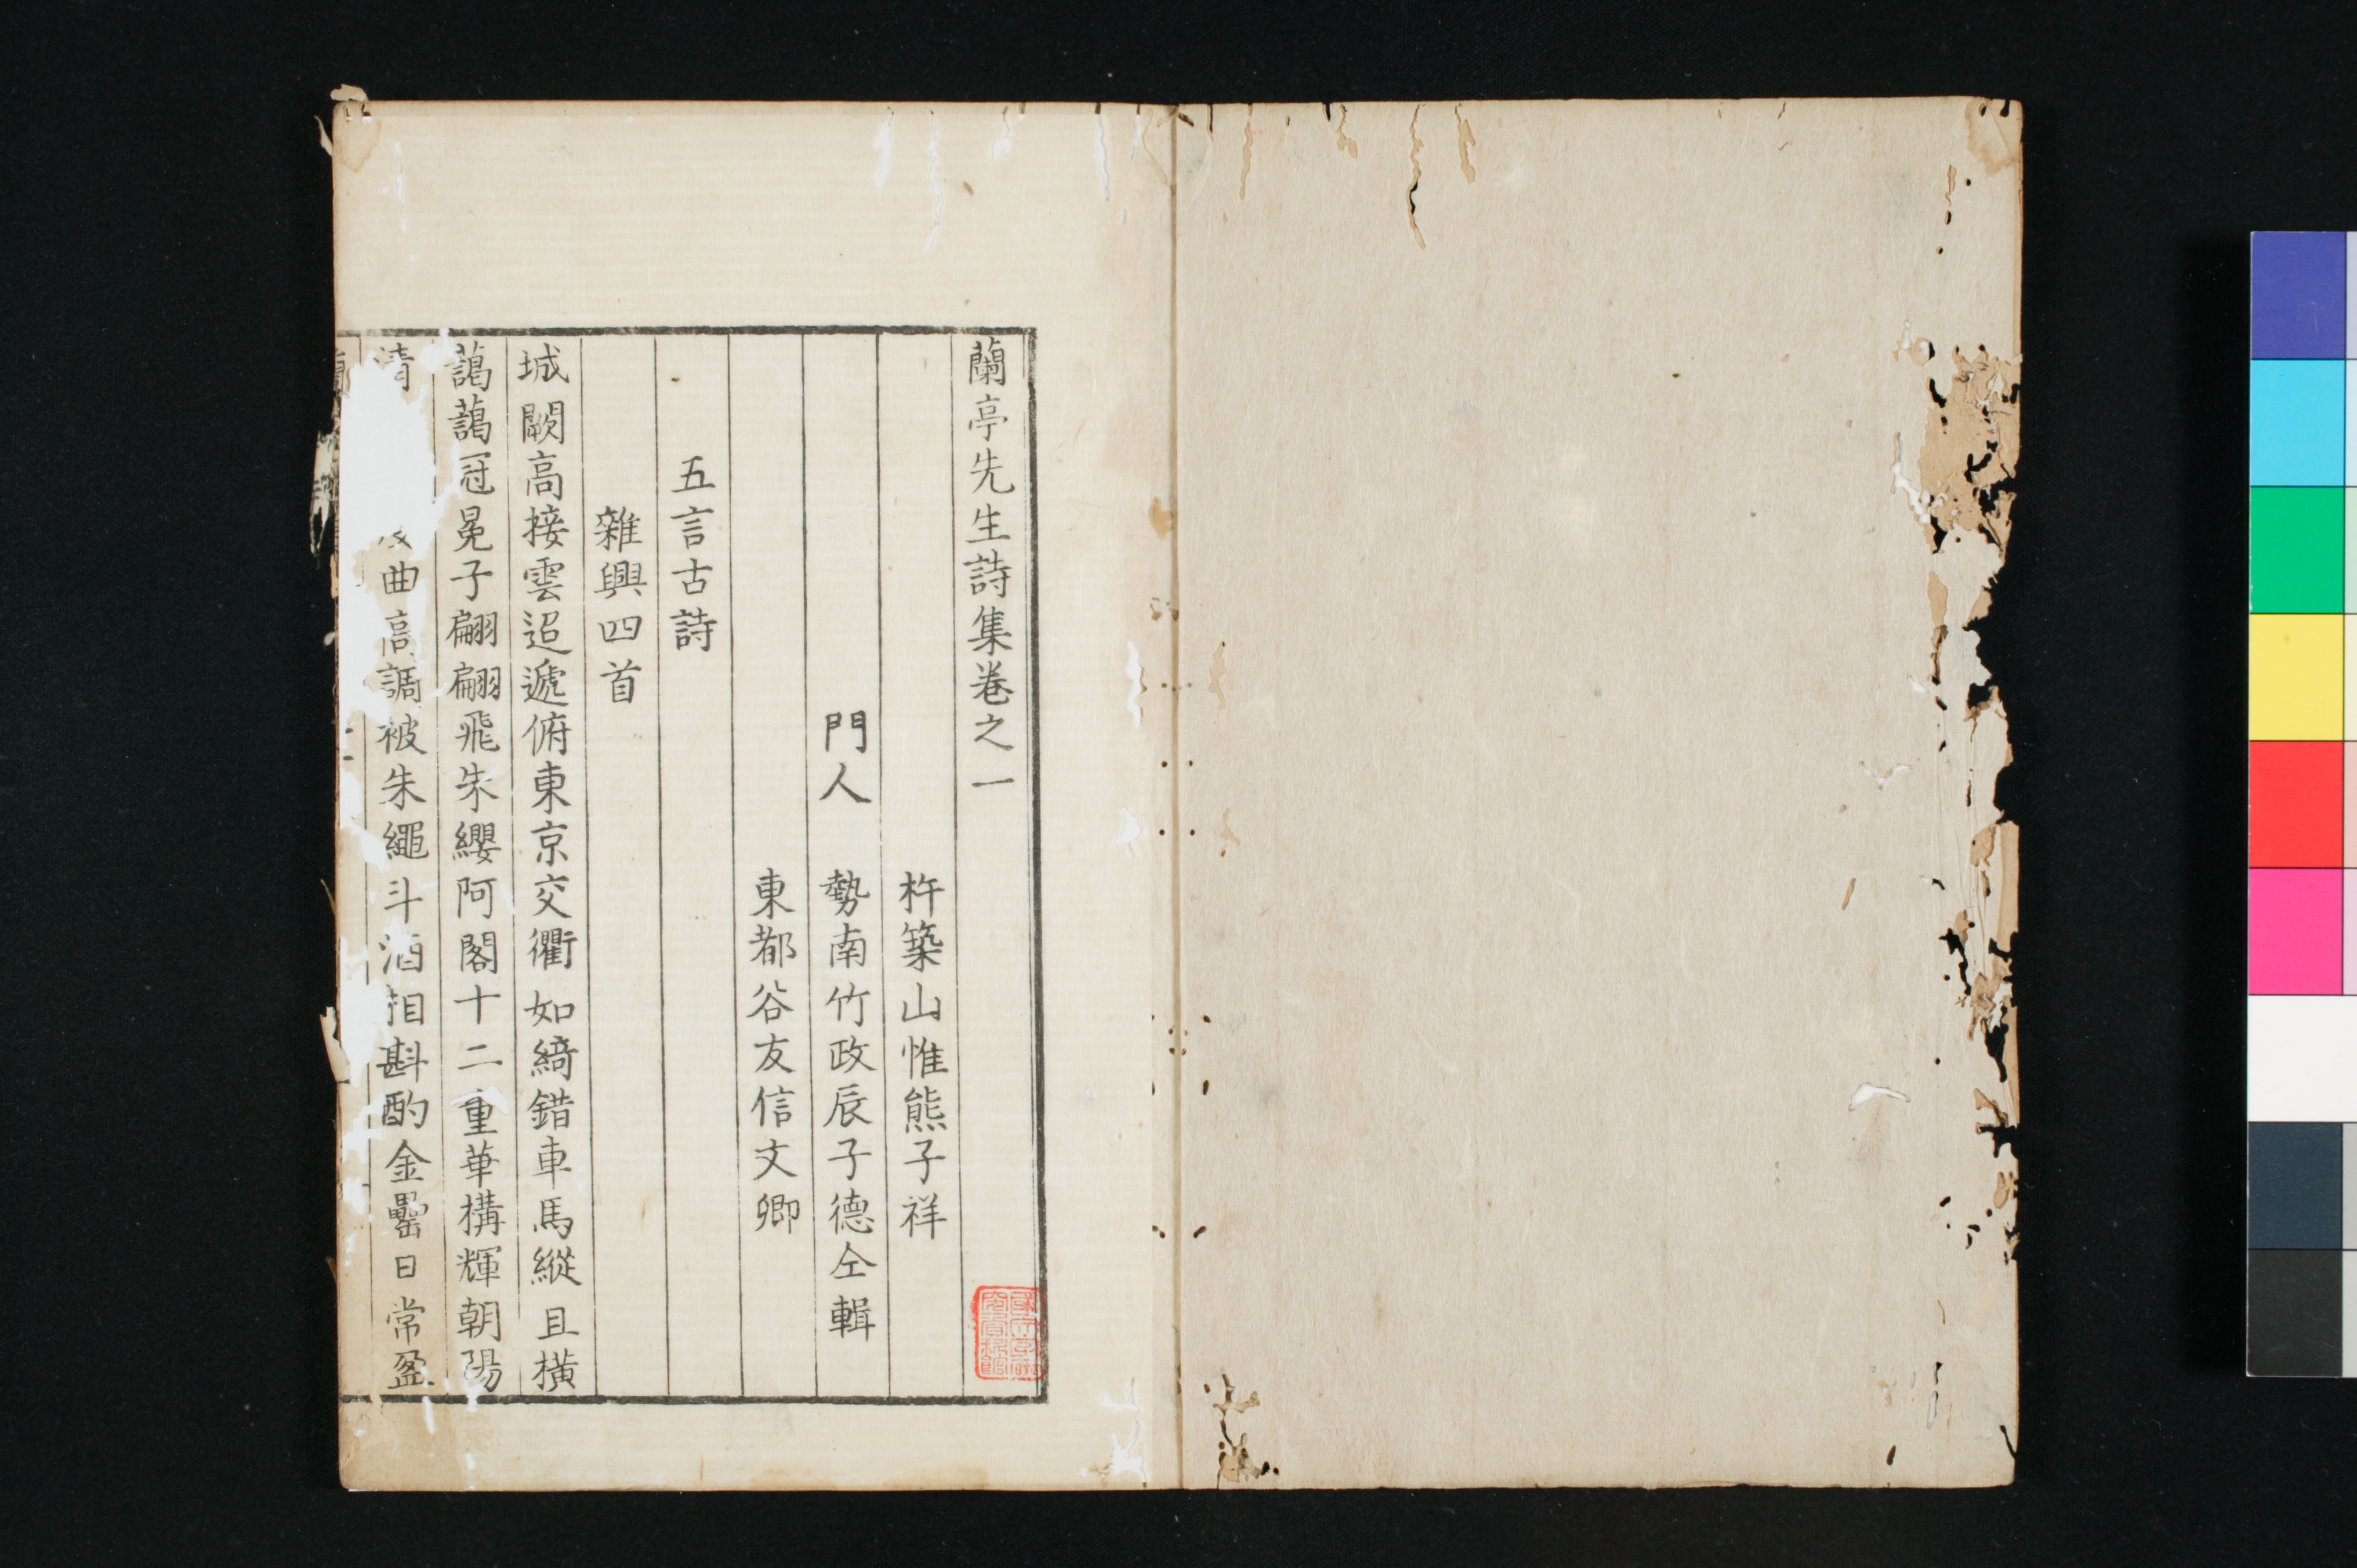 蘭亭先生詩集卷之一
杵築山惟熊子祥
門人 勢南竹政辰子德仝輯
東都谷友信文卿
五言古詩
雜興四首
城闕高接雲迢遞俯東京交衢如綺錯車馬縱且橫
藹藹冠冕子翩翩飛朱纓阿閣十二重華構輝朝陽
清曲高調被朱繩斗酒相斟酌金罍日常盈